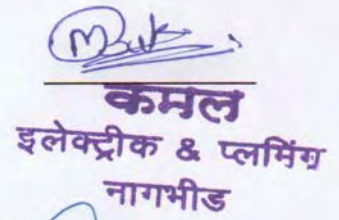 कमल
इलेक्ट्रीक & प्लमिंग
नागभीड